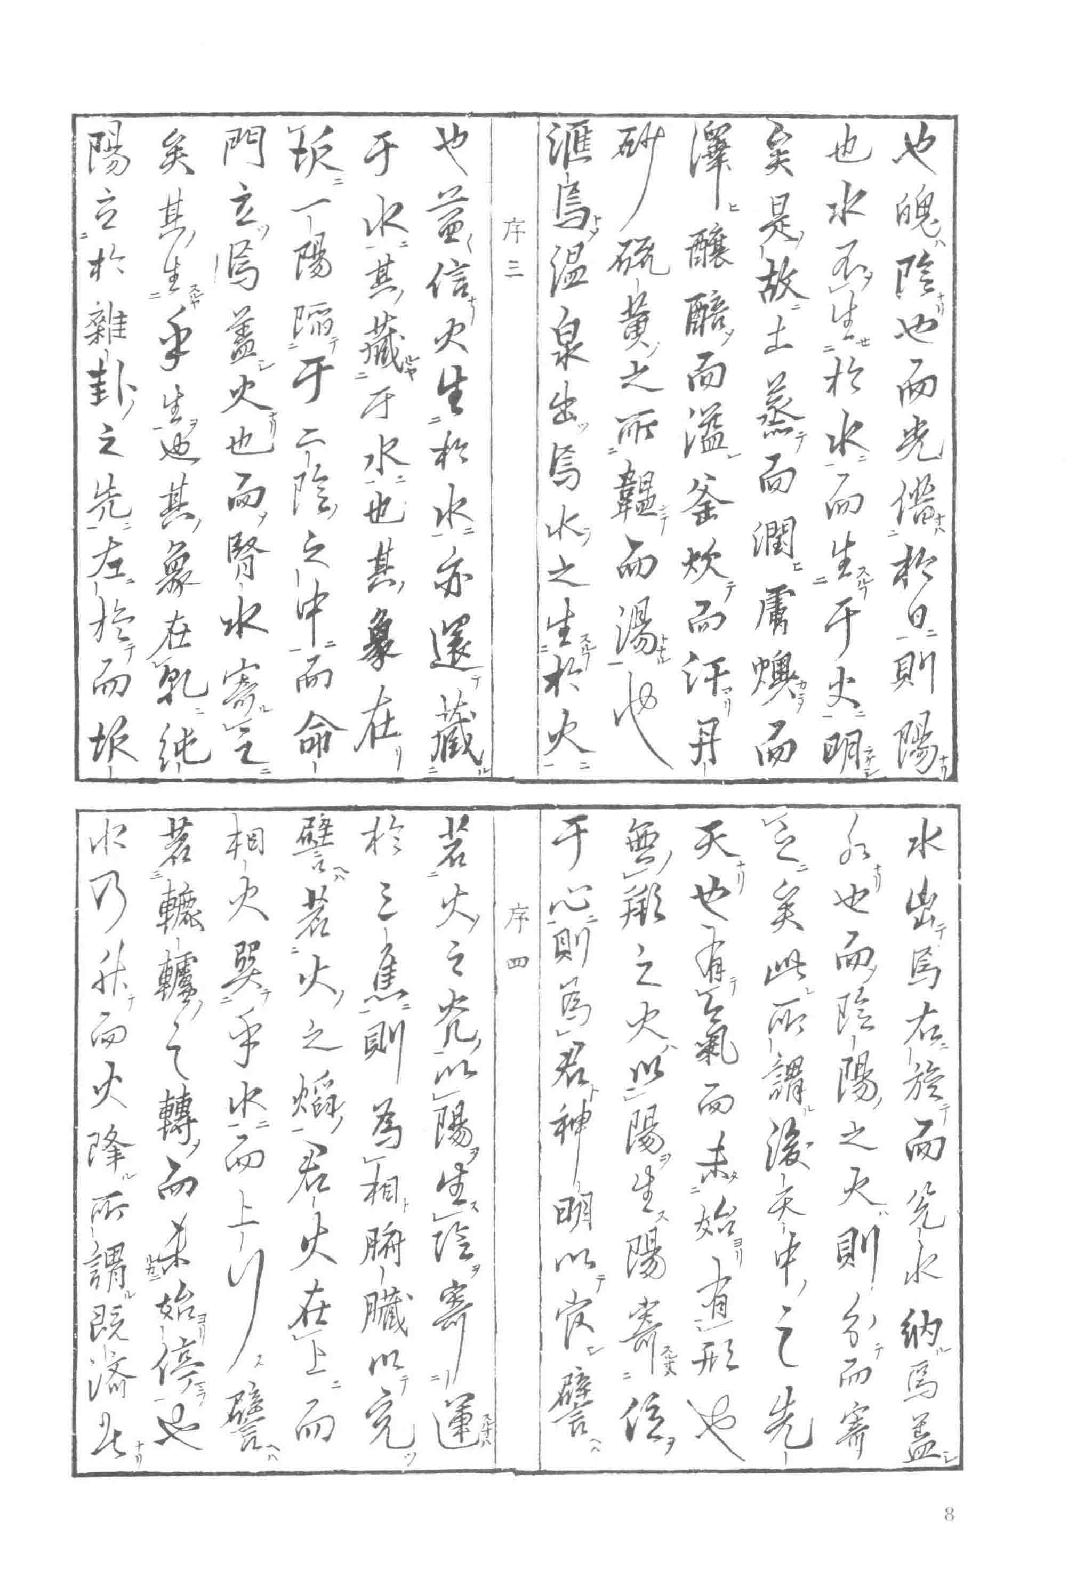 也魄陰也而光借於日則陽
也水不生於水而生于火明
矣是故土蒸而潤膚燠而
澤醸醅而溢釜炊而汗丹
砂硫黄之所韞而湯也
滙焉温泉出焉水之生於火
序三
也益信火生於水亦還藏
于水其藏于水也其象在
坎一陽陥于二陰之中而命
門立焉蓋火也而腎水寄之
矣其生乎生也其象在乾純
陽立於雜卦之先左旋而坎
水出焉右旋而兌水納焉蓋
水也而陰陽之火則分而寄
之矣此所謂後天中之先
天也有氣而未始有形也
無形之火以陽生陽寄位
于心則為君神明以官譬
序四
若火之光以陽生陰寄運
於三焦則為相腑臟以完
譬若火之焰君火在上而
相火巽乎水而上行譬
若轆轤之轉而未始停也
水乃升而火降所謂既濟是
8